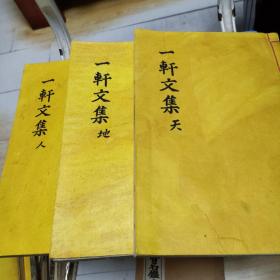 一軒文集 天
一軒文集 地
一軒文集 人